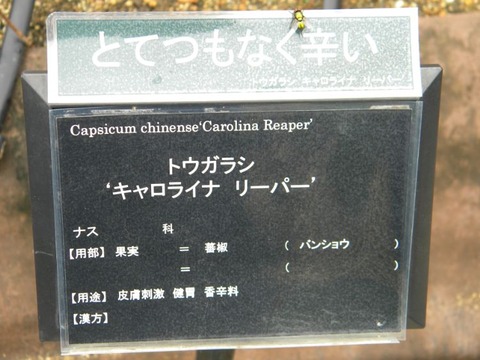 とてつもなく辛い
トウガラシ キャロライナ リーパー
Capsicum chinense‘Carolina Reaper’
トウガラシ
‘キャロライナ リーパー’
ナス 科
【用部】 果実 ＝ 蕃椒 （ バンショウ ）
＝ （ ）
【用途】 皮膚刺激 健胃 香辛料
【漢方】